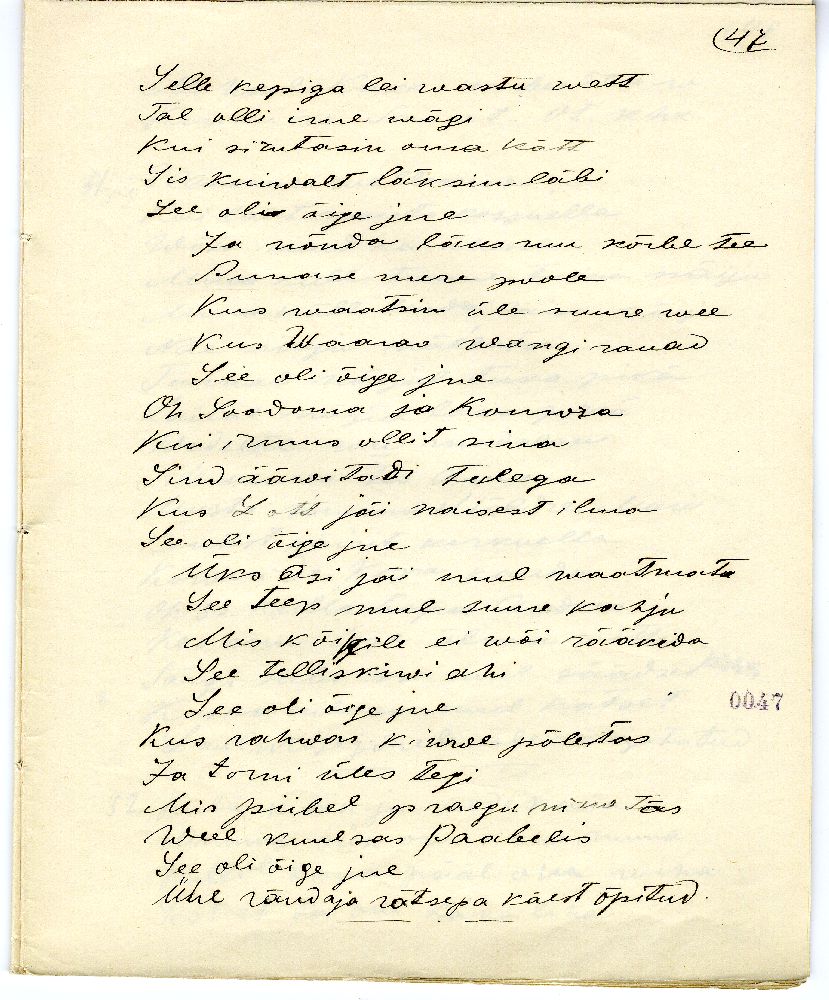 (47
Selle kepiga lei wastu wett
Tal olli ime wägi
Kui sirutasin oma kätt
Sis kuiwalt läksin läbi
See oli õige jne
Ja nõnda läks mu kõrbe tee
Punase mere poole
Kus waatsin üle suure wee
Kus Waarao wangirauad
See oli õige jne
Oh Soodoma ja Komora
Kui irmus ollit sina
Sind ääwitadi tulega
Kus Lott jäi naisest ilma
See oli õige jne
Üks asi jäi mul waatmata
See teep mul suure kahju
Mis kõikile ei wõi rääkida
See telliskiwi ahi
See oli õige jne
0047
Kus rahwas kiwwe põletas
Ja torni üles tegi
Mis piibel praegu nimetas
Weel kuulsas Paabelis
See oli õige jne
Ühe rändaja rätsepa käest õpitud.